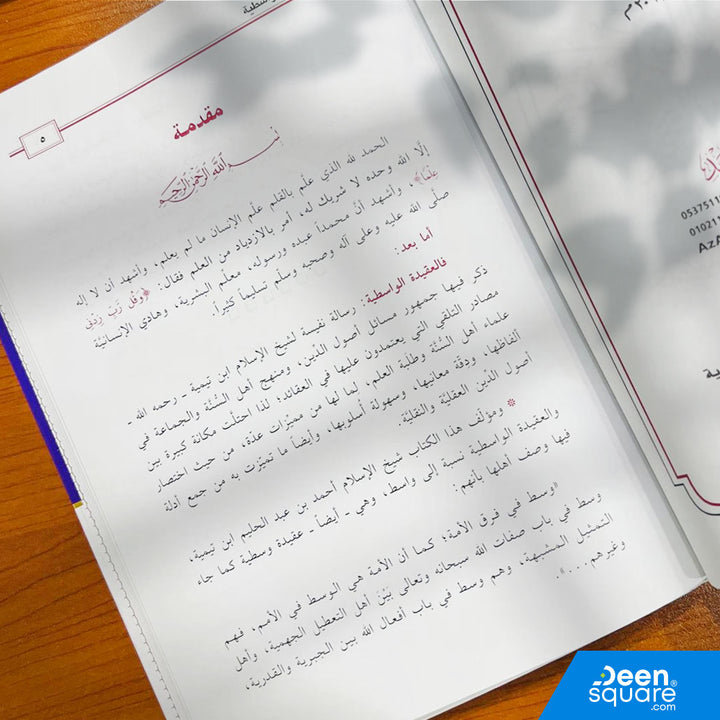 مقدمة
٥
بسم الله الرحمن الرحيم
الحمد لله الذي علّم بالقلم علّم الإنسان ما لم يعلم، وأشهد أن لا إله
إلّا الله وحده لا شريك له، أمر بالازدياد من العلم فقال: ﴿وَقُل رَّبِّ زِدْنِي
عِلْمًا﴾، وأشهد أنّ محمداً عبده ورسوله، معلّم البشرية، وهادي الإنسانيّة
صلّى الله عليه وعلى آله وصحبه وسلّم تسليماً كثيراً.
أما بعد:
فالعقيدة الواسطية: رسالة نفيسة لشيخ الإسلام ابن تيمية ـ رحمه الله ـ
ذكر فيها جمهور مسائل أصول الدّين، ومنهج أهل السُّنَّة والجماعة في
مصادر التلقي التي يعتمدون عليها في العقائد؛ لذا احتلّت مكانة كبيرة بين
علماء أهل السُّنَّة وطلبة العلم، لما لها من مميّزات عدة، من حيث اختصار
ألفاظها، ودقّة معانيها، وسهولة أسلوبها، وأيضاً ما تميّزت به من جمع أدلة
أصول الدّين العقليّة والنقليّة.
* ومؤلّف هذا الكتاب شيخ الإسلام أحمد بن عبد الحليم ابن تيمية،
والعقيدة الواسطية نسبة إلى واسط، وهي ـ أيضاً ـ عقيدة وسطية كما جاء
فيها وصف أهلها بأنهم:
«وسط في فرق الأمة؛ كما أن الأمة هي الوسط في الأمم، فهم
وسط في باب صفات الله سبحانه وتعالى بَيْنَ أهل التعطيل الجهمية، وأهل
التمثيل المشبهة، وهم وسط في باب أفعال الله بين الجبرية والقدرية،
وغيرهم...».
0537511
010211
AzA
Deen
square®
.com